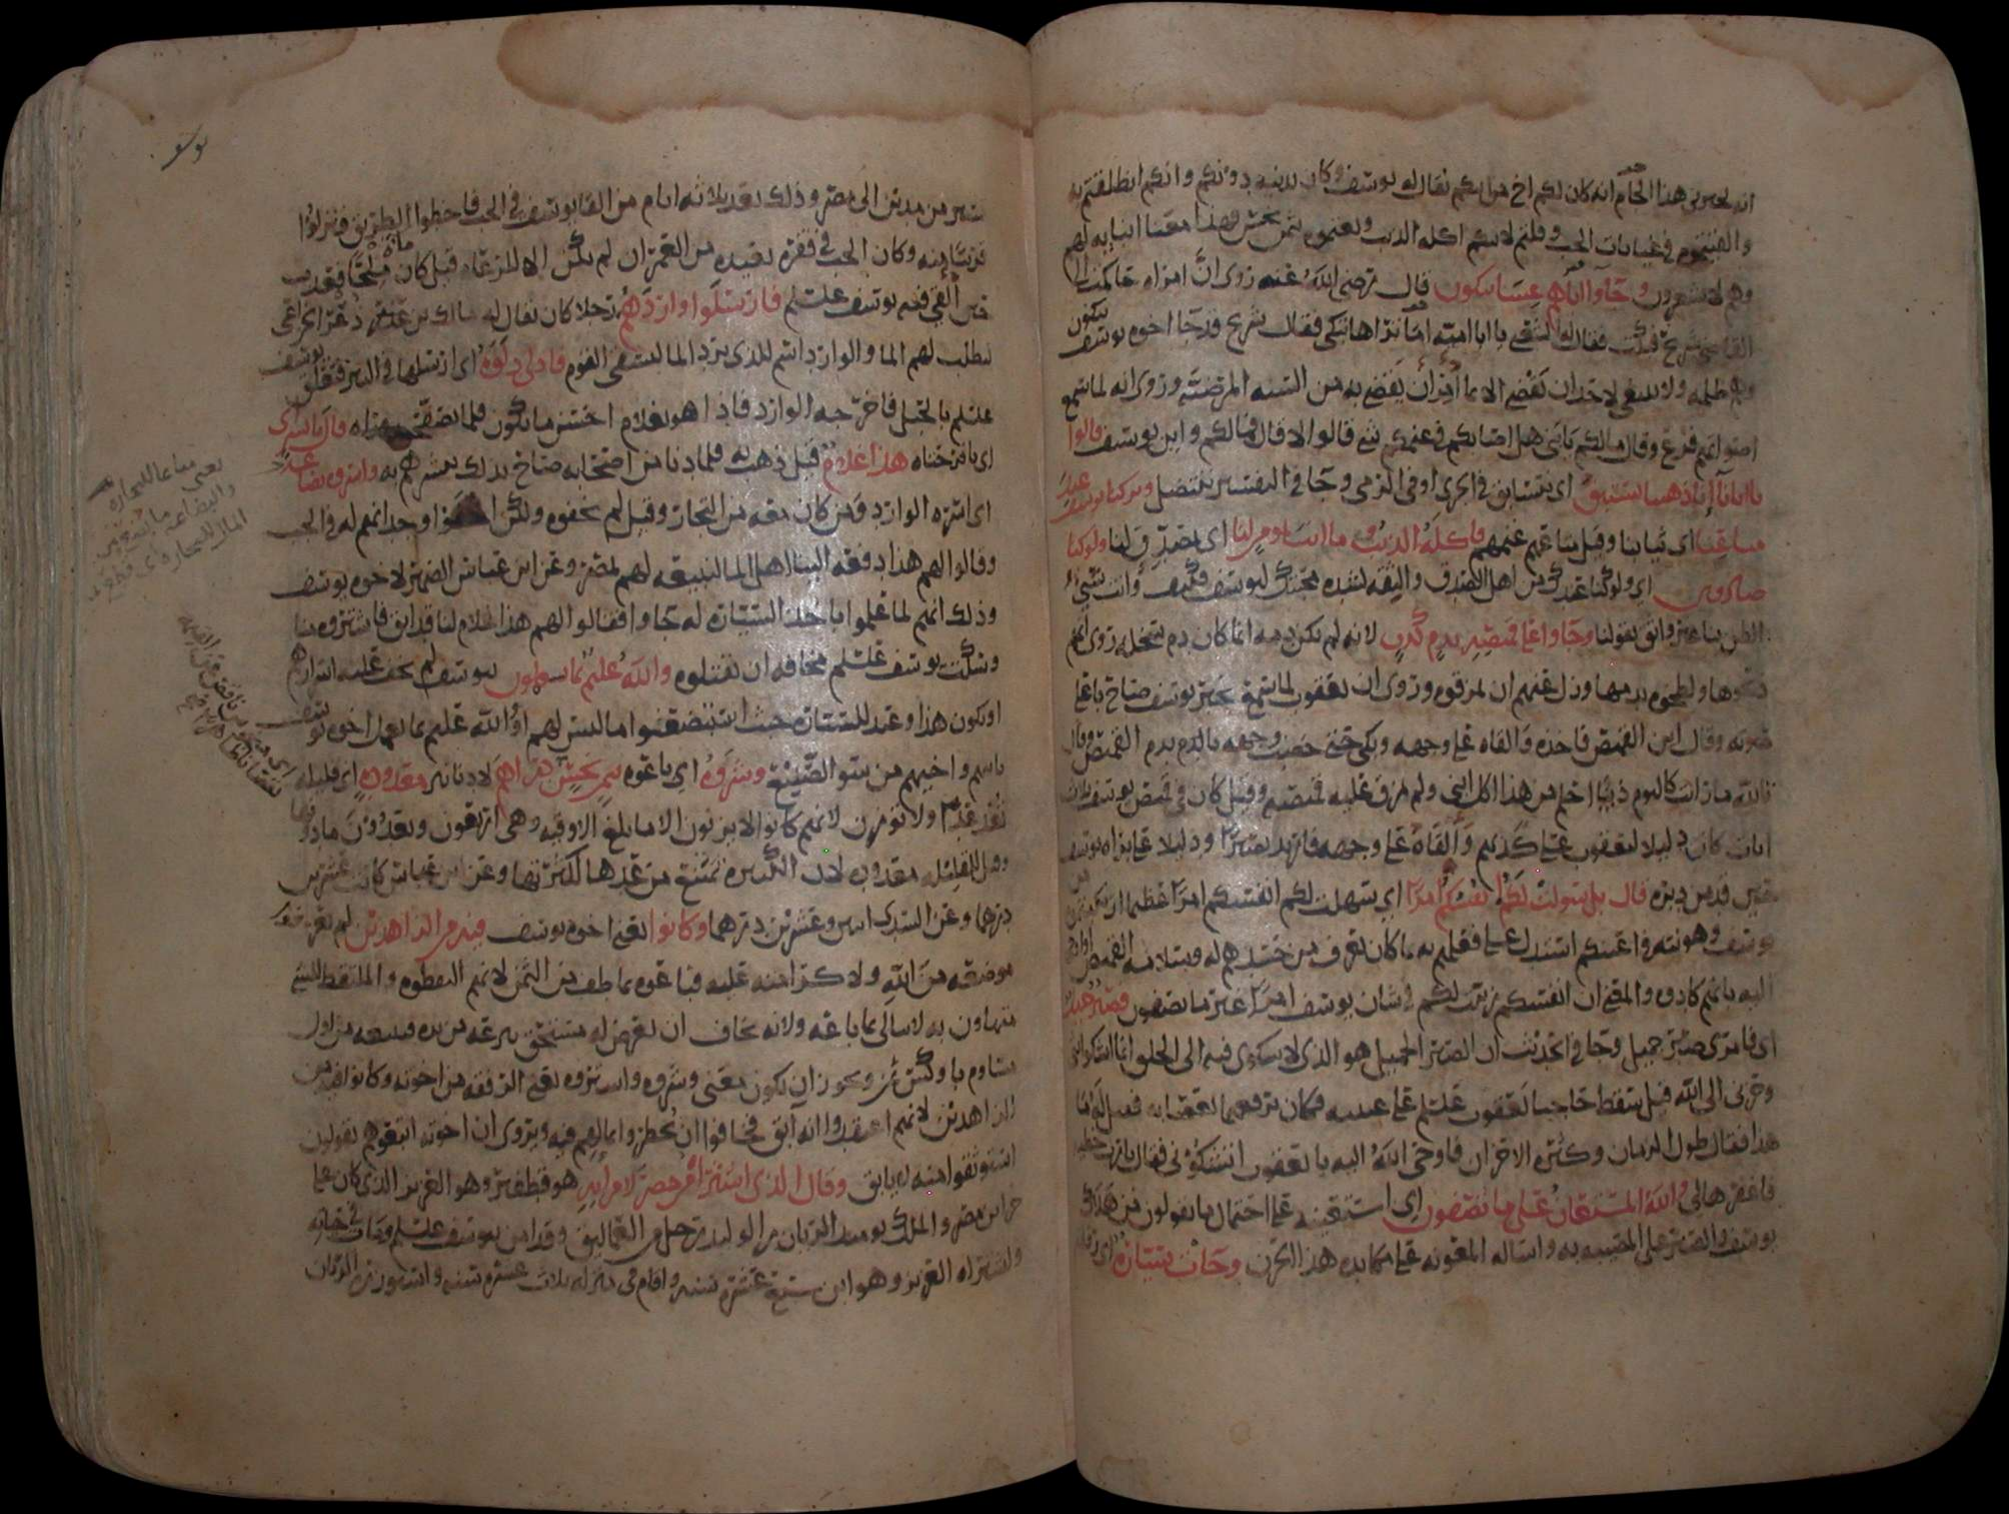 انه ليخبرني هذا الجام انه كان لكم اخ من ابيكم يقال له يوسف وكان يدنيه دونكم وانكم انطلقتم به
والقيتموه في غيابات الجب وقلتم لابيكم اكله الذيب وبعتموه بثمن بخس فهذا معنى انبايه لهم
وهم لا يشعرون وجاوا اباهم عشا يبكون قال رضي الله عنه روى ان امراه حاكمت الى
القاضي شريح فبكت فقال له الشعبي يا ابا اميه اما تراها تبكي فقال شريح قد جا اخوه يوسف يبكون
وهم ظلمه ولا ينبغي لاحد ان يقضي الا بما امر ان يقضي به من السنه المرضيه وروى انه لما سمع
اصواتهم فزع وقال ما لكم يا بني هل اصابكم في غنمكم شي قالوا لا قال فما لكم واين يوسف قالوا
يا ابانا انا ذهبنا نستبق اي نتسابق في الجري او في الرمي وجا في التفسير ننتضل وتركنا يوسف عند
متاعنا اي ثيابنا وقيل متاعهم غنمهم فاكله الذيب وما انت بمومن لنا اي بمصدق لنا ولو كنا
صادقين اي ولو كنا عندك من اهل الصدق والثقه لشده محبتك ليوسف فكيف وانت سي
الظن بنا غير واثق بقولنا وجاوا على قميصه بدم كذب لانه لم يكن دمه انما كان دم سخله روى انهم
ذبحوها ولطخوه بدمها وزل عنهم ان يمزقوه وروى ان يعقوب لما سمع بخبر يوسف صاح باعلى
صوته وقال اين القميص فاخذه والقاه على وجهه وبكى حتى خضب وجهه بالدم بدم القميص وقال
تالله ما رايت كاليوم ذيبا احلم من هذا اكل ابني ولم يمزق عليه قميصه وقيل كان في قميص يوسف ثلاث
ايات كان دليلا ليعقوب على كذبهم والقاه على وجهه فارتد بصيرا ودليلا على براه يوسف
حين قد من دبره قال بل سولت لكم انفسكم امرا اي سهلت لكم انفسكم امرا عظيما ارتكبتموه من
يوسف وهونته في اعينكم استدل على فعلهم به بما كان يعرف من حسدهم له وبسلامه القميص او اوحى
اليه بانهم كادوه والمعنى ان انفسكم زينت لكم في شان يوسف امرا غير ما تصفون فصبر جميل
اي فامري صبر جميل وجا في الحديث ان الصبر الجميل هو الذي لا شكوى فيه الى الخلق انما اشكو بثي
وحزني الى الله قيل سقط حاجبا يعقوب علسلم على عينيه فكان يرفعهما بعصابه فقيل له ما
هذا فقال طول الزمان وكثره الاحزان فاوحى الله اليه يا يعقوب اتشكوني فقال يا رب خطيه
فاغفرها لي والله المستعان على ما تصفون اي استعينه على احتمال ما تقولون من هلاك
يوسف والصبر على المصيبه به واساله المعونه على مكابده هذا الحزن وجات سياره اي رفقه
يوسف
تسير من مدين الى مصر وذلك بعد ثلاثه ايام من القا يوسف في الجب فاخطوا الطريق فنزلوا
قريبا منه وكان الجب في قفره بعيده من العمران لم يكن الا للرعاه قيل كان ماوه ملحا فعذب
حين القي فيه يوسف علسلم فارسلوا واردهم رجلا كان يقال له مالك بن ذعر الخزاعي
ليطلب لهم الما والوارد اسم للذي يرد الما ليستقي القوم فادلى دلوه اي ارسلها في البير فتعلق يوسف
علسلم بالحبل فاخرجه الوارد فاذا هو بغلام احسن ما يكون فلما راه قال يا بشرى
اي يا فرحتاه هذا غلام قيل ذهب به فلما دنا من اصحابه صاح بذلك يبشرهم به واسروه بضاعه
اي اسره الوارد ومن كان معه من التجار وقيل لم يخفوه ولكن اخفوا وجدانهم له في الجب
وقالوا لهم هذا دفعه الينا اهل الما لنبيعه لهم بمصر وعن ابن عباس الضمير لاخوه يوسف
وذلك انهم لما علموا باخذ السياره له جاوا فقالوا لهم هذا غلام لنا قد ابق فاشتروه منا
وسكت يوسف علسلم مخافه ان يقتلوه والله عليم بما يعملون بيوسف لم يخف عليه اسرارهم
او يكون هذا وعيد للسياره حيث استبضعوا ما ليس لهم او والله عليم بما يعمل اخوه يوسف
بابيهم واخيهم من سو الصنيع وشروه اي باعوه بثمن بخس دراهم لا دنانير معدوده اي قليله
تعد عدا ولا توزن لانهم كانوا لا يزنون الا ما بلغ الاوقيه وهي اربعون ويعدون ما دونها
وقيل للقليله معدوده لان الكثيره تمتنع من عدها لكثرتها وعن ابن عباس كانت عشرين
درهما وعن السدي اثنين وعشرين درهما وكانوا يعني اخوه يوسف فيه من الزاهدين لم يعرفوا
موضعه من الله ولا كرامته عليه فباعوه بما طف من الثمن لانهم التقطوه والملتقط للشي
متهاون به لا يبالي بما باعه ولانه يخاف ان يعرض له مستحق ينزعه من يده فيبيعه من اول
مساوم باوكس ثمن ويجوز ان يكون معنى وشروه واشتروه يعني الرفقه من اخوته وكانوا فيه من
الزاهدين لانهم اعتقدوا انه ابق فخافوا ان يخطروا بمالهم فيه ويروى ان اخوته اتبعوهم يقولون
استوثقوا منه لا يابق وقال الذي اشتراه من مصر لامراته هو قطفير وهو العزيز الذي كان على
خزاين مصر والملك يوميذ الريان بن الوليد رجل من العماليق وقد امن بيوسف علسلم ومات في حياته
واشتراه العزيز وهو ابن سبع عشره سنه واقام في منزله ثلاث عشره سنه واستوزره الريان
يعني متاعا للتجاره
والبضاعه ما
المال للتجاره اي قطع